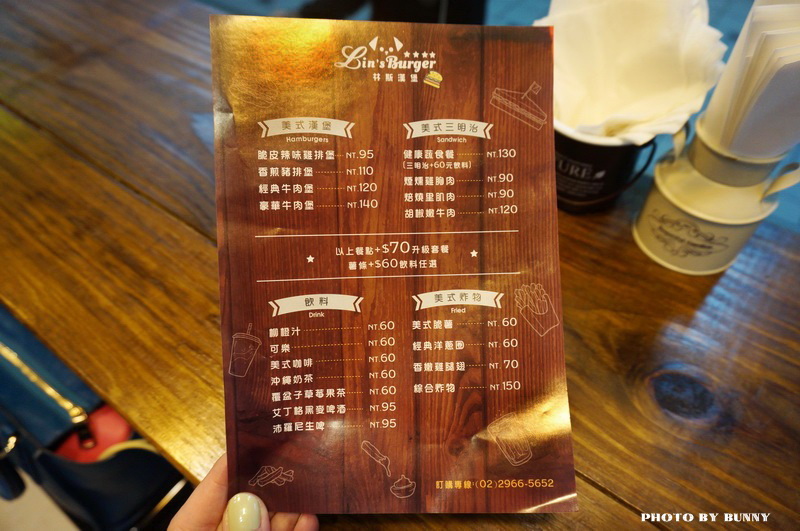 Lin's Burger
林斯漢堡
美式漢堡
Hamburgers
脆皮辣味雞排堡 NT.95
香煎豬排堡 NT.110
經典牛肉堡 NT.120
豪華牛肉堡 NT.140
美式三明治
Sandwich
健康蔬食餐 NT.130
(三明治+60元飲料)
煙燻雞胸肉 NT.90
焙燒里肌肉 NT.90
胡椒嫩牛肉 NT.120
以上餐點+$70升級套餐
薯條+$60飲料任選
飲料
Drink
柳橙汁 NT.60
可樂 NT.60
美式咖啡 NT.60
沖繩奶茶 NT.60
覆盆子草莓果茶 NT.60
艾丁格黑麥啤酒 NT.95
沛羅尼生啤 NT.95
美式炸物
Fried
美式脆薯 NT.60
經典洋蔥圈 NT.60
香嫩雞腿翅 NT.70
綜合炸物 NT.150
訂購專線:(02)2966-5652
PHOTO BY BUNNY